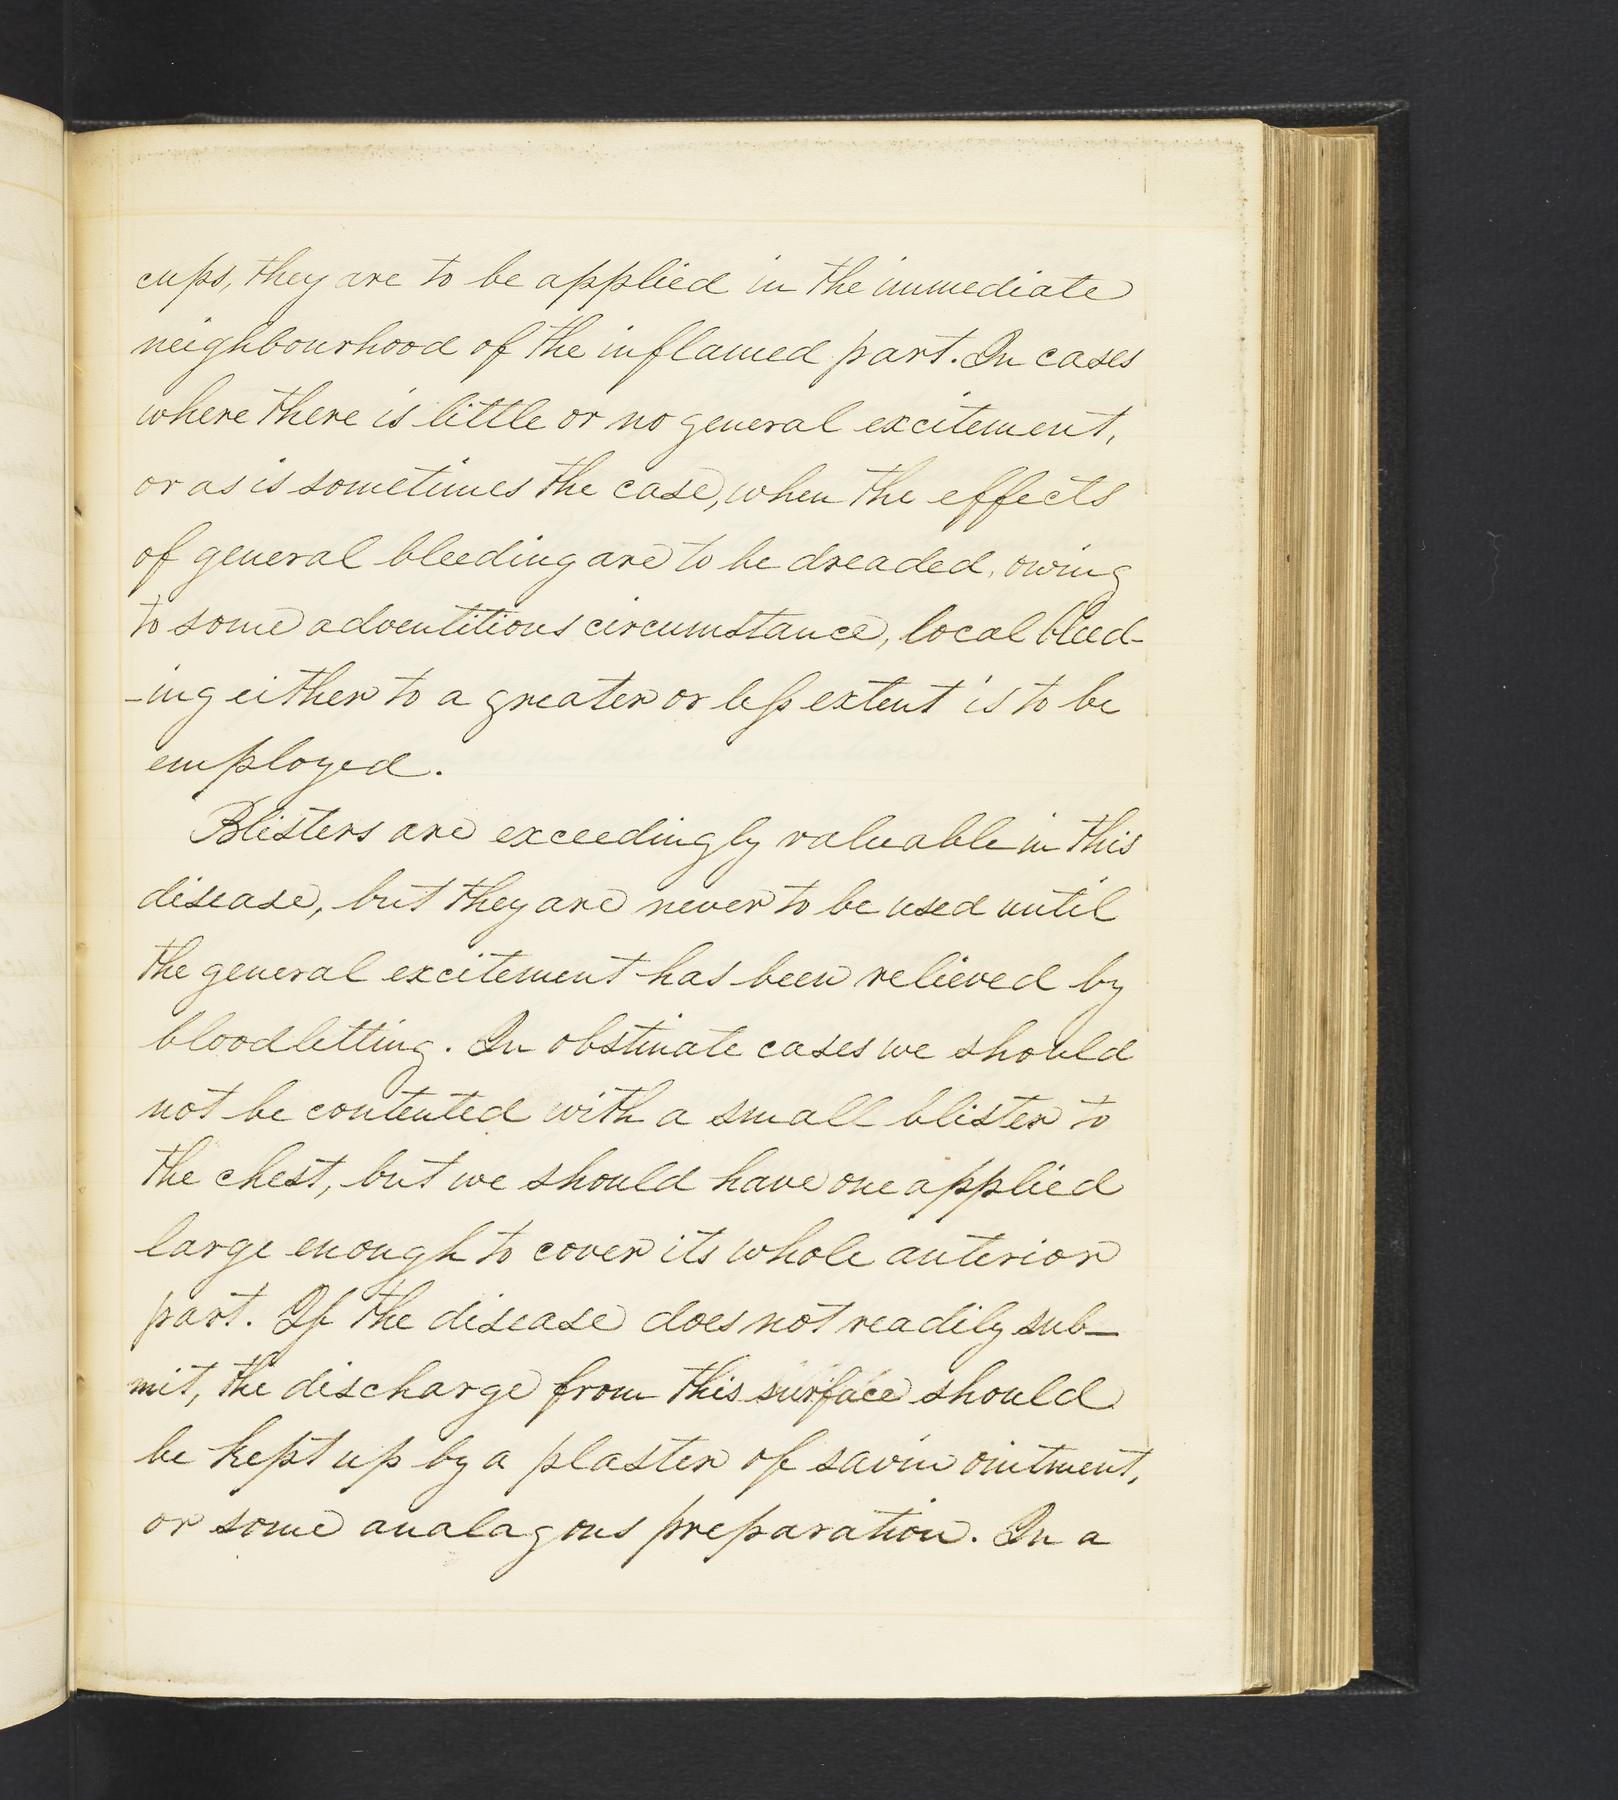 cups, they are to be applied in the immediate
neighbourhood of the inflamed part. In cases
where there is little or no general excitement,
or as is sometimes the case, when the effects
of general bleeding are to be dreaded, owing
to some adventitious circumstance, local bleed-
-ing either to a greater or less extent is to be
employed.
Blisters are exceedingly valuable in this
disease, but they are never to be used until
the general excitement has been relieved by
bloodletting. In obstinate cases we should
not be contented with a small blister to
the chest, but we should have one applied
large enough to cover its whole anterior
part. If the disease does not readily sub-
mit, the discharge from this surface should
be kept up by a plaster of savin ointment,
or some analagous preparation. In a